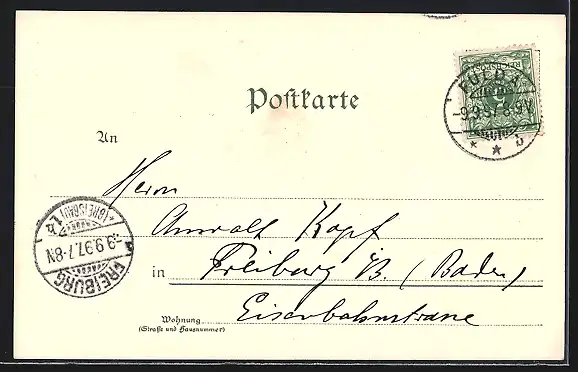 Postkarte
FULDA
-9.9.97.8-9V
* * b
An
Herrn
Anwalt Kopf
in Freiburg i/B. (Baden)
Eisenbahnstrasse
Wohnung
(Straße und Hausnummer)
FREIBURG
-9.9.97.7-8N
* (BREISGAU) 1.h